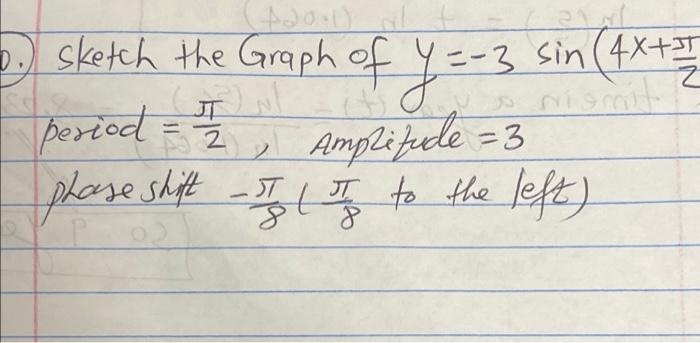 0.) Sketch the Graph of y = -3 sin(4x + π/2
period = π/2 , Amplitude = 3
phase shift - π/8 ( π/8 to the left)